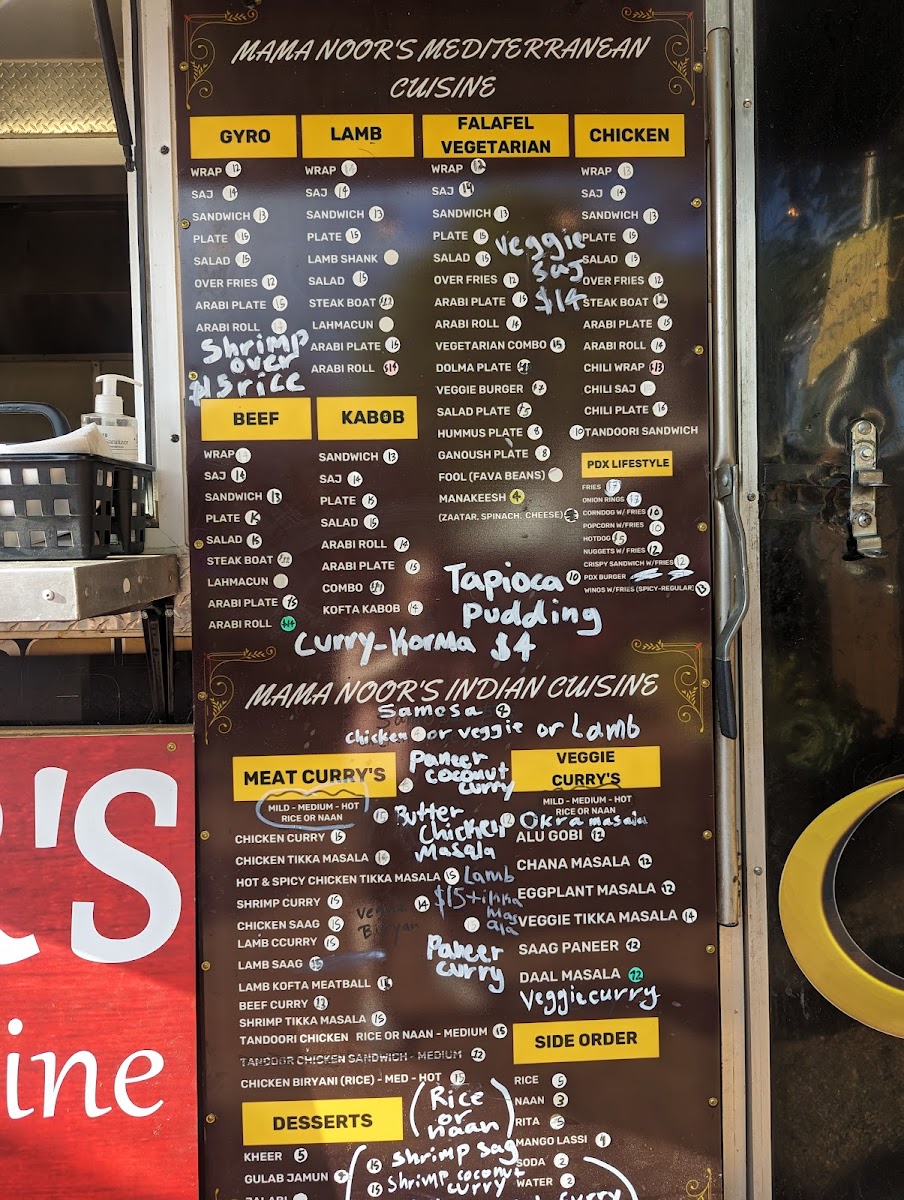 MAMA NOOR'S MEDITERRANEAN
CUISINE
GYRO
WRAP 12
SAJ 14
SANDWICH 13
PLATE 15
SALAD 15
OVER FRIES 12
ARABI PLATE 15
ARABI ROLL
Shrimp
over
$15 rice
LAMB
WRAP
SAJ 14
SANDWICH 13
PLATE 15
LAMB SHANK
SALAD 15
STEAK BOAT
LAHMACUN
ARABI PLATE 15
ARABI ROLL $14
FALAFEL
VEGETARIAN
WRAP 12
SAJ 14
SANDWICH 13
PLATE 15
SALAD 15
OVER FRIES 12
ARABI PLATE 15
ARABI ROLL 14
VEGETARIAN COMBO 15
DOLMA PLATE
VEGGIE BURGER
SALAD PLATE
HUMMUS PLATE 8
GANOUSH PLATE 8
FOOL (FAVA BEANS)
MANAKEESH 4
(ZAATAR, SPINACH, CHEESE)
veggie
saj
$14
CHICKEN
WRAP 13
SAJ 14
SANDWICH 13
PLATE 15
SALAD 15
OVER FRIES 12
STEAK BOAT 12
ARABI PLATE 15
ARABI ROLL 14
CHILI WRAP $13
CHILI SAJ
CHILI PLATE 16
10 TANDOORI SANDWICH
PDX LIFESTYLE
FRIES
ONION RINGS
CORNDOG W/ FRIES 10
POPCORN W/FRIES 10
HOTDOG 5
NUGGETS W/ FRIES 12
CRISPY SANDWICH W/FRIES 12
10 PDX BURGER
WINGS W/FRIES (SPICY-REGULAR) 13
BEEF
WRAP
SAJ 14
SANDWICH 13
PLATE 15
SALAD 15
STEAK BOAT
LAHMACUN
ARABI PLATE 15
ARABI ROLL $14
KABOB
SANDWICH 13
SAJ 14
PLATE 15
SALAD 15
ARABI ROLL 14
ARABI PLATE 15
COMBO
KOFTA KABOB 14
Tapioca
Pudding
Curry-Korma $4
MAMA NOOR'S INDIAN CUISINE
Samosa 4
chicken or veggie or Lamb
MEAT CURRY'S
MILD - MEDIUM - HOT
RICE OR NAAN
CHICKEN CURRY 15
CHICKEN TIKKA MASALA
HOT & SPICY CHICKEN TIKKA MASALA 15
SHRIMP CURRY 15
CHICKEN SAAG 15
LAMB CCURRY 15
LAMB SAAG 15
LAMB KOFTA MEATBALL
BEEF CURRY 12
SHRIMP TIKKA MASALA 15
TANDOORI CHICKEN RICE OR NAAN - MEDIUM 15
TANDOOR CHICKEN SANDWICH - MEDIUM 12
CHICKEN BIRYANI (RICE) - MED - HOT 15
Paneer
coconut
curry
15 Butter
Chicken
Masala
Lamb
$15 tikka
Mas
ala
14
Paneer
curry
VEGGIE
CURRY'S
MILD - MEDIUM - HOT
RICE OR NAAN
12 Okra masala
ALU GOBI 12
CHANA MASALA 12
EGGPLANT MASALA 12
VEGGIE TIKKA MASALA 14
SAAG PANEER 12
DAAL MASALA 12
Veggie curry
SIDE ORDER
RICE 5
NAAN 3
RITA 5
MANGO LASSI 4
SODA 2
WATER 2
(Rice
or
naan)
DESSERTS
KHEER 5
GULAB JAMUN
JALABI
15 Shrimp sag
15 Shrimp coconut
curry
curry
R'S
ine